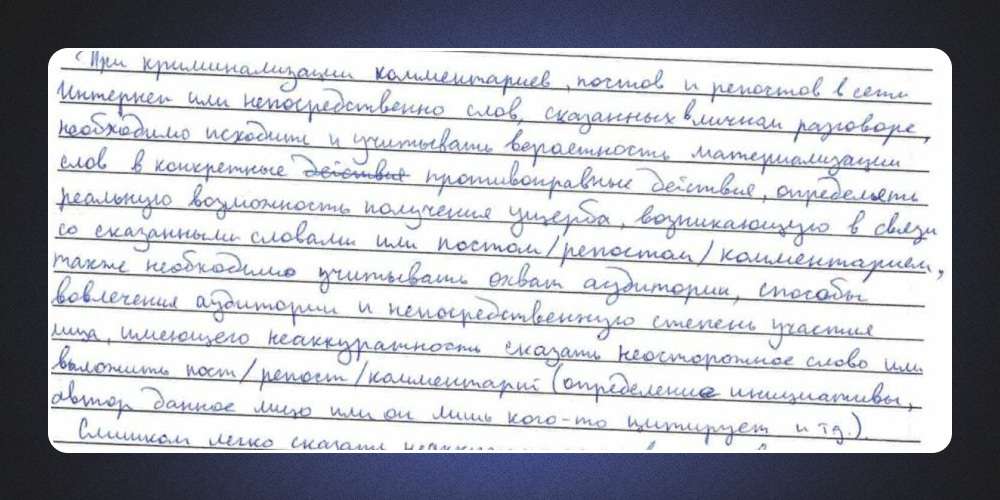 При криминализации комментариев, постов и репостов в сети
Интернет или непосредственно слов, сказанных в личном разговоре,
необходимо исходить и учитывать вероятность материализации
слов в конкретные действия противоправные действия, определять
реальную возможность получения ущерба, возникающую в связи
со сказанными словами или постом/репостом/комментарием,
также необходимо учитывать охват аудитории, способы
вовлечения аудитории и непосредственную степень участия
лица, имеющего неаккуратность сказать неосторожное слово или
выложить пост/репост/комментарий (определение инициативы,
автор данное лицо или он лишь кого-то цитирует и т.д.).
Слишком легко сказать